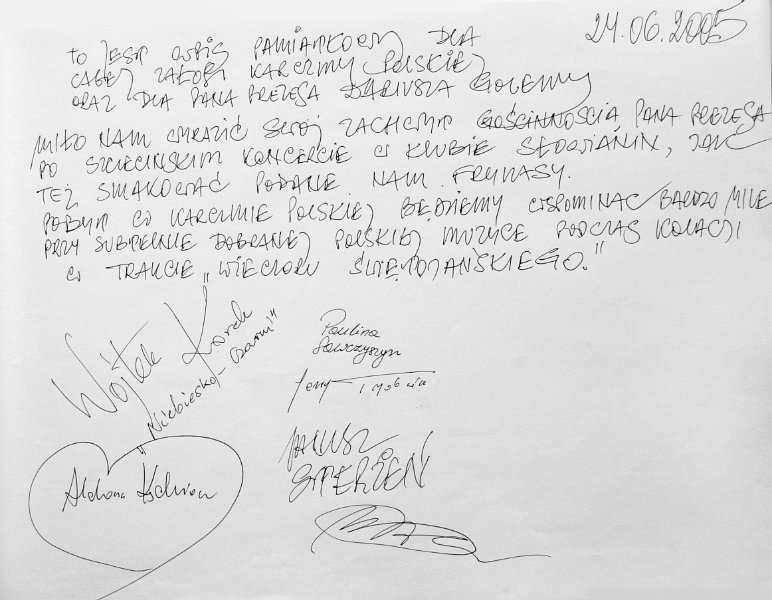 24.06.2005
TO JEST WPIS PAMIĄTKOWY DLA
CAŁEJ ZAŁOGI KARCZMY POLSKIEJ
ORAZ DLA PANA PREZESA DARIUSZA GOLEMY
MIŁO NAM WYRAZIĆ SWÓJ ZACHWYT GOŚCINNOŚCIĄ PANA PREZESA
PO SZCZECIŃSKIM KONCERCIE W KLUBIE SŁOWIANIN, JAK
TEŻ SMAKOWAĆ PODANE NAM FRYKASY.
POBYT W KARCZMIE POLSKIEJ BĘDZIEMY WSPOMINAĆ BARDZO MILE
PRZY SUBTELNIE DOBRANEJ POLSKIEJ MUZYCE PODCZAS KOLACJI
W TRAKCIE „WIECZORU ŚWIĘTOJAŃSKIEGO."
Wojtek Korda
Niebiesko-Czarni"
Paulina
Jerzy
JANUSZ
Aldona